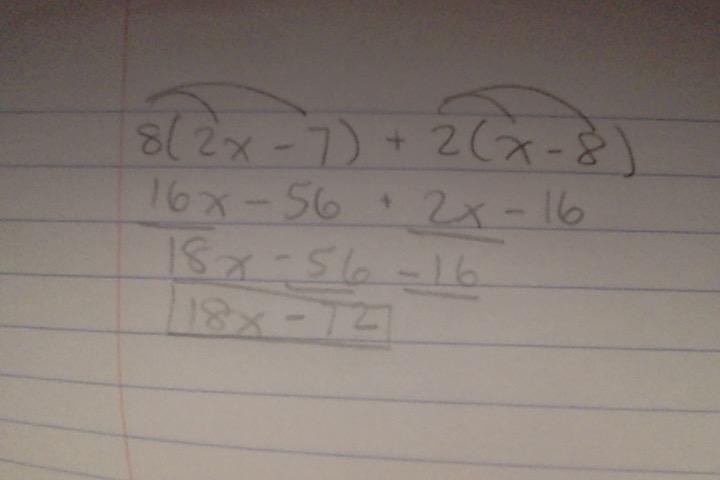 8(2x-7) + 2(x-8)
16x-56 + 2x-16
18x-56-16
18x-72